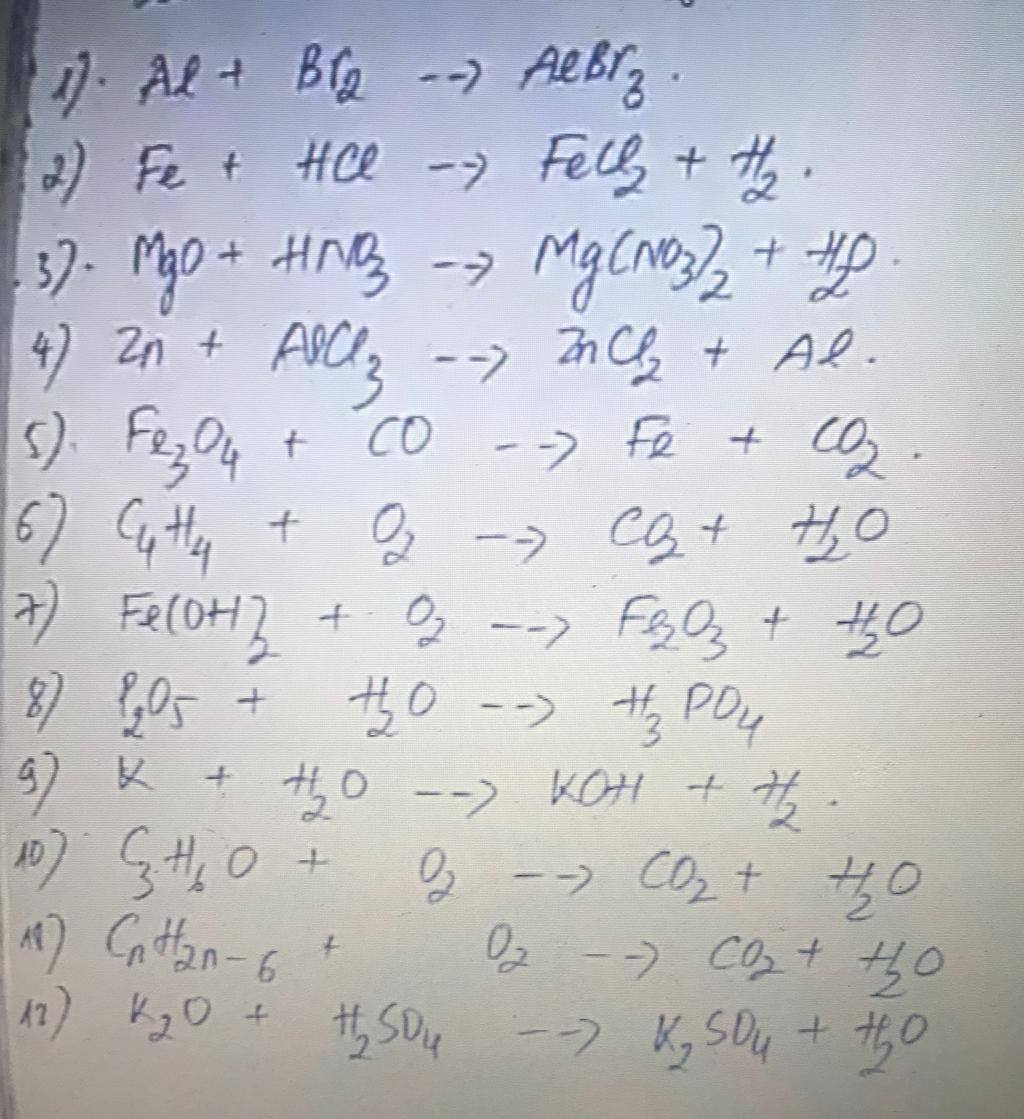 1). Al + Br2 --> AlBr3.
2) Fe + HCl --> FeCl2 + H2.
3). MgO + HNO3 --> Mg(NO3)2 + H2O.
4) Zn + AlCl3 --> ZnCl2 + Al.
5). Fe3O4 + CO --> Fe + CO2.
6) C4H4 + O2 --> CO2 + H2O
7) Fe(OH)2 + O2 --> Fe2O3 + H2O
8) P2O5 + H2O --> H3PO4
9) K + H2O --> KOH + H2.
10) C3H6O + O2 --> CO2 + H2O
11) CnH2n-6 + O2 --> CO2 + H2O
12) K2O + H2SO4 --> K2SO4 + H2O